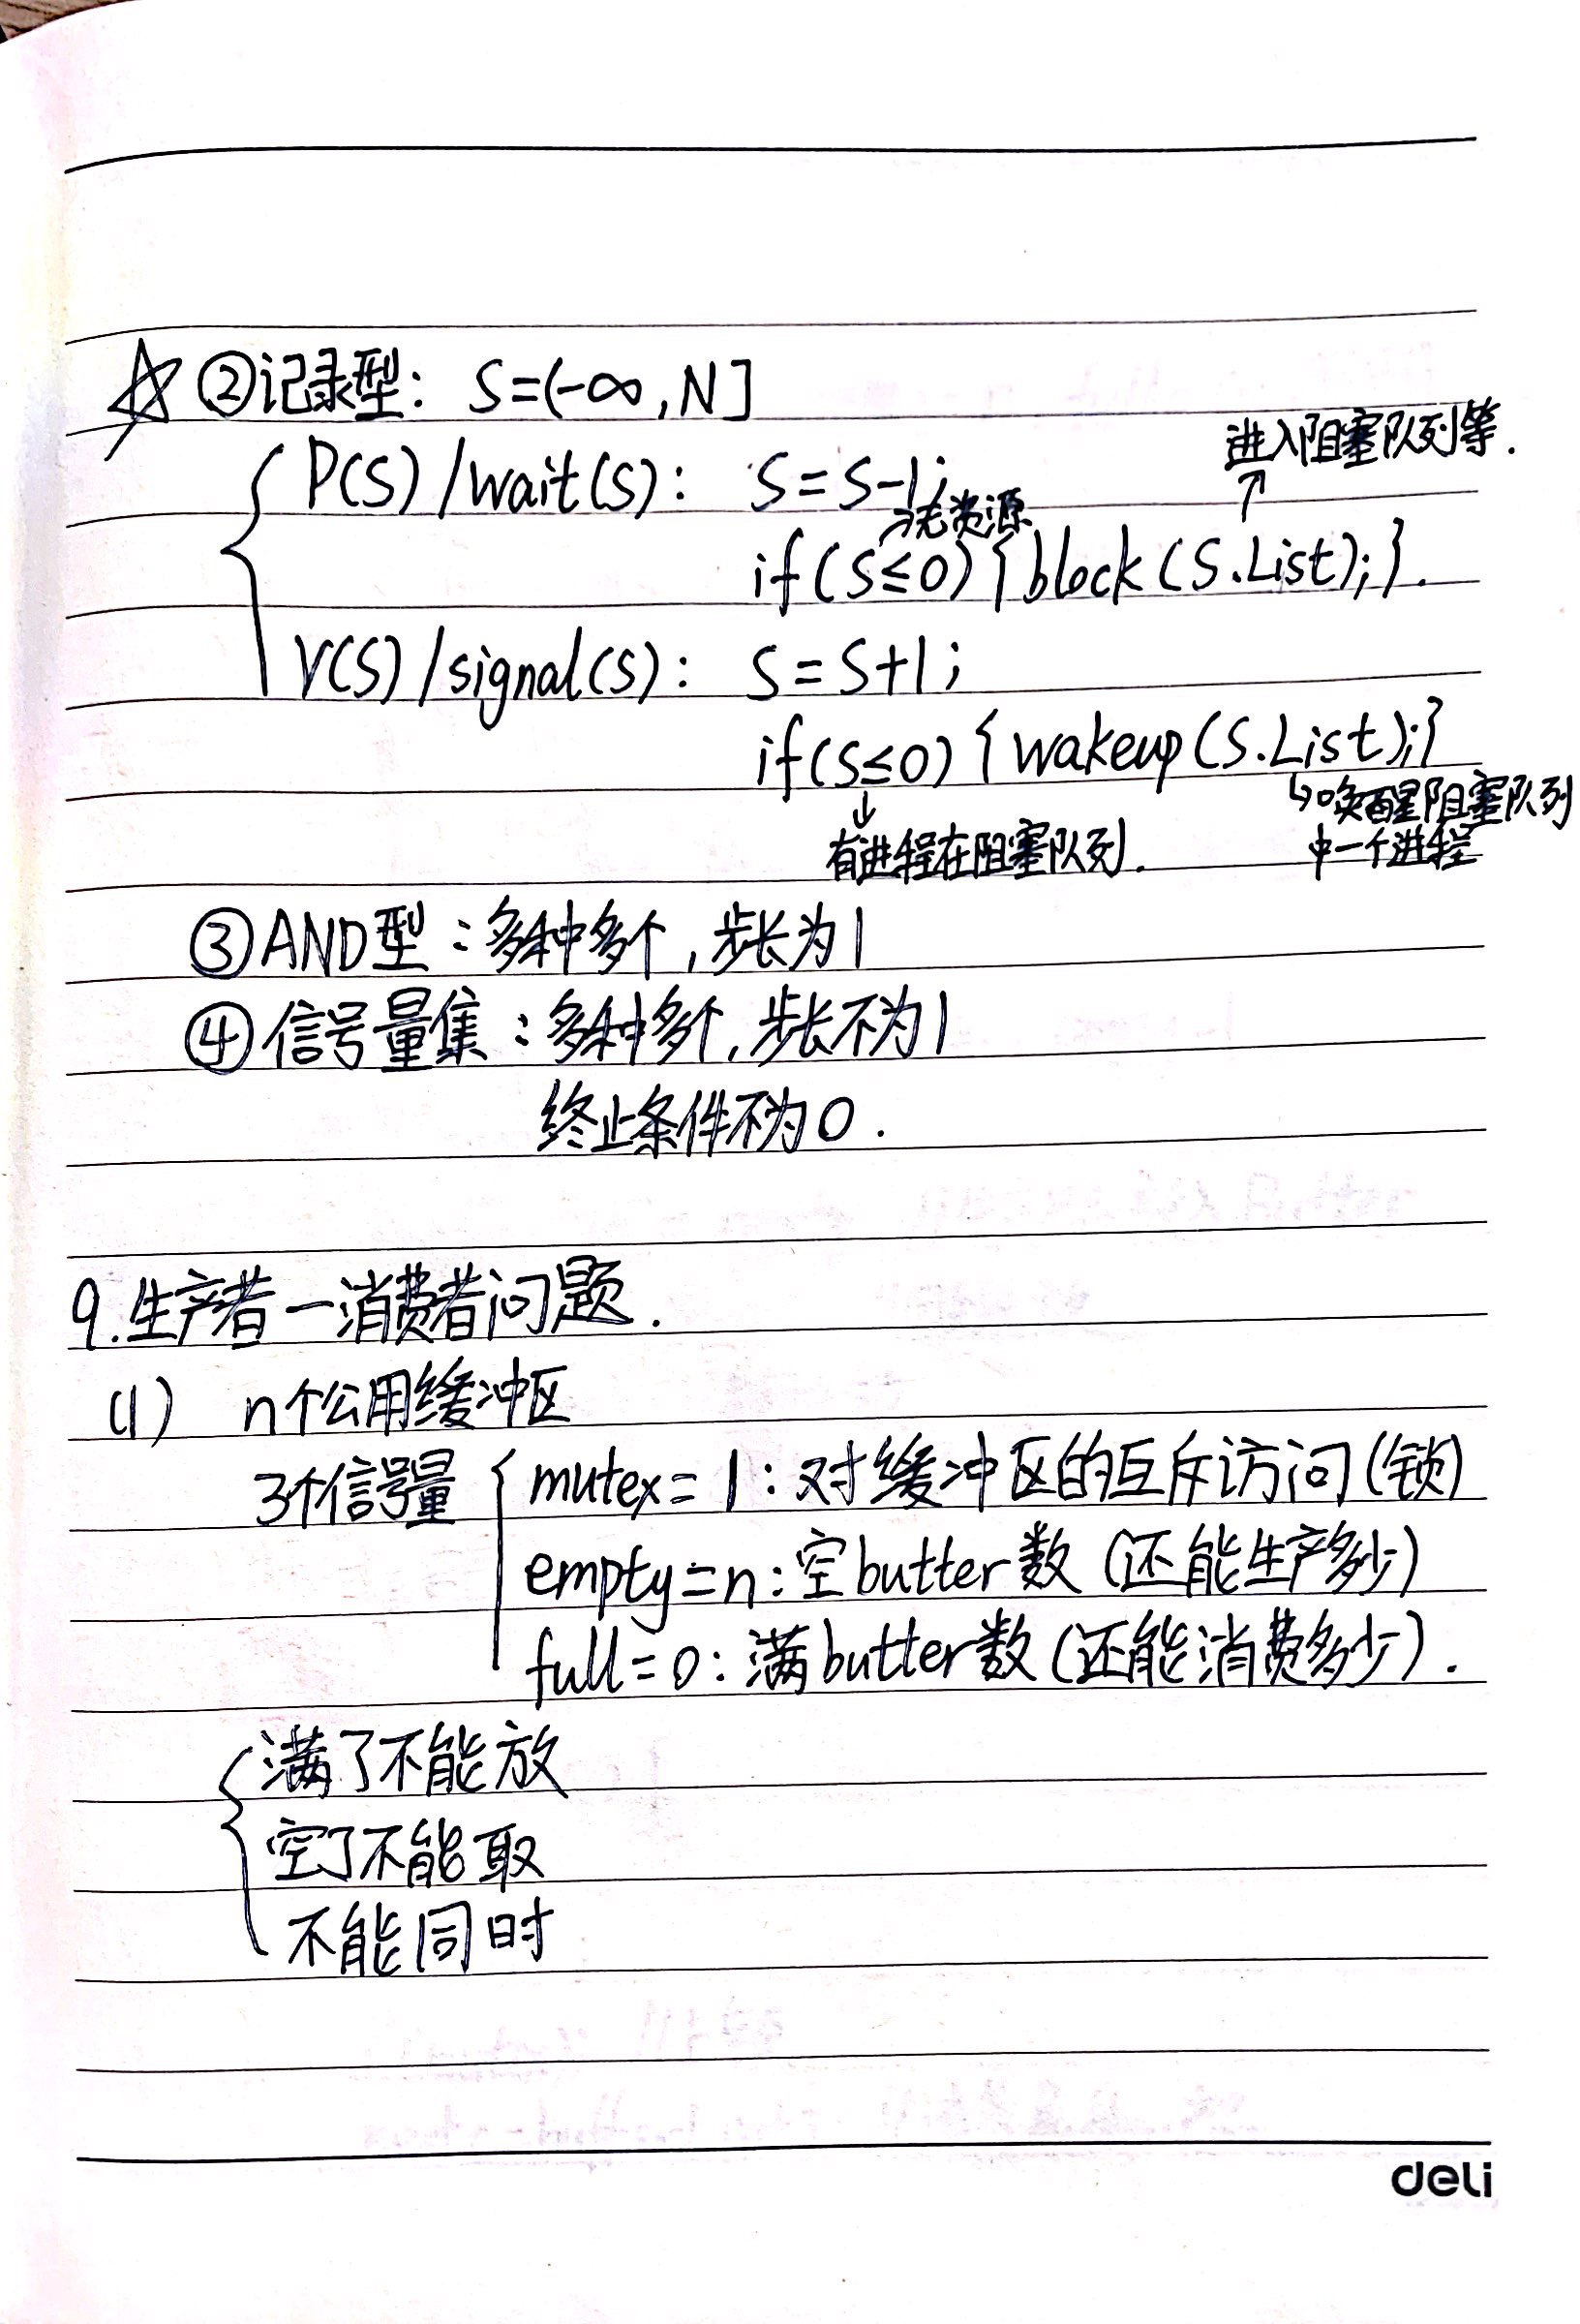 ☆ ②记录型: S=(-∞,N]
进入阻塞队列等.
P(S)/wait(S): S=S-1;
↑
→无资源
if(S≤0){block(S.List);}.
V(S)/signal(S): S=S+1;
if(S≤0){wakeup(S.List);}
↓
↳唤醒阻塞队列
有进程在阻塞队列. 中一个进程
③AND型:多种多个,步长为1
④信号量集:多种多个,步长不为1
终止条件不为0.
9.生产者—消费者问题.
(1) n个公用缓冲区
3个信号量 { mutex=1:对缓冲区的互斥访问(锁)
empty=n:空butter数(还能生产多少)
full=0:满butter数(还能消费多少).
{满了不能放
空了不能取
不能同时
deli